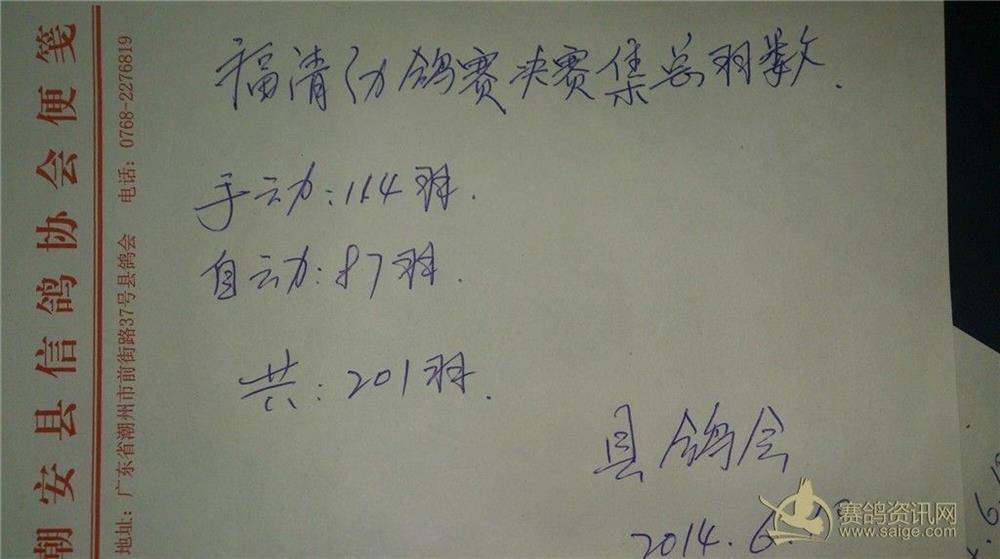 潮安县信鸽协会便笺
地址：广东省潮州市前街路37号县鸽会 电话：0768-2276819
福清幼鸽赛决赛集总羽数.
手动：114羽.
自动：87羽.
共：201羽.
县鸽会
2014.6.
赛鸽资讯网
www.saige.com